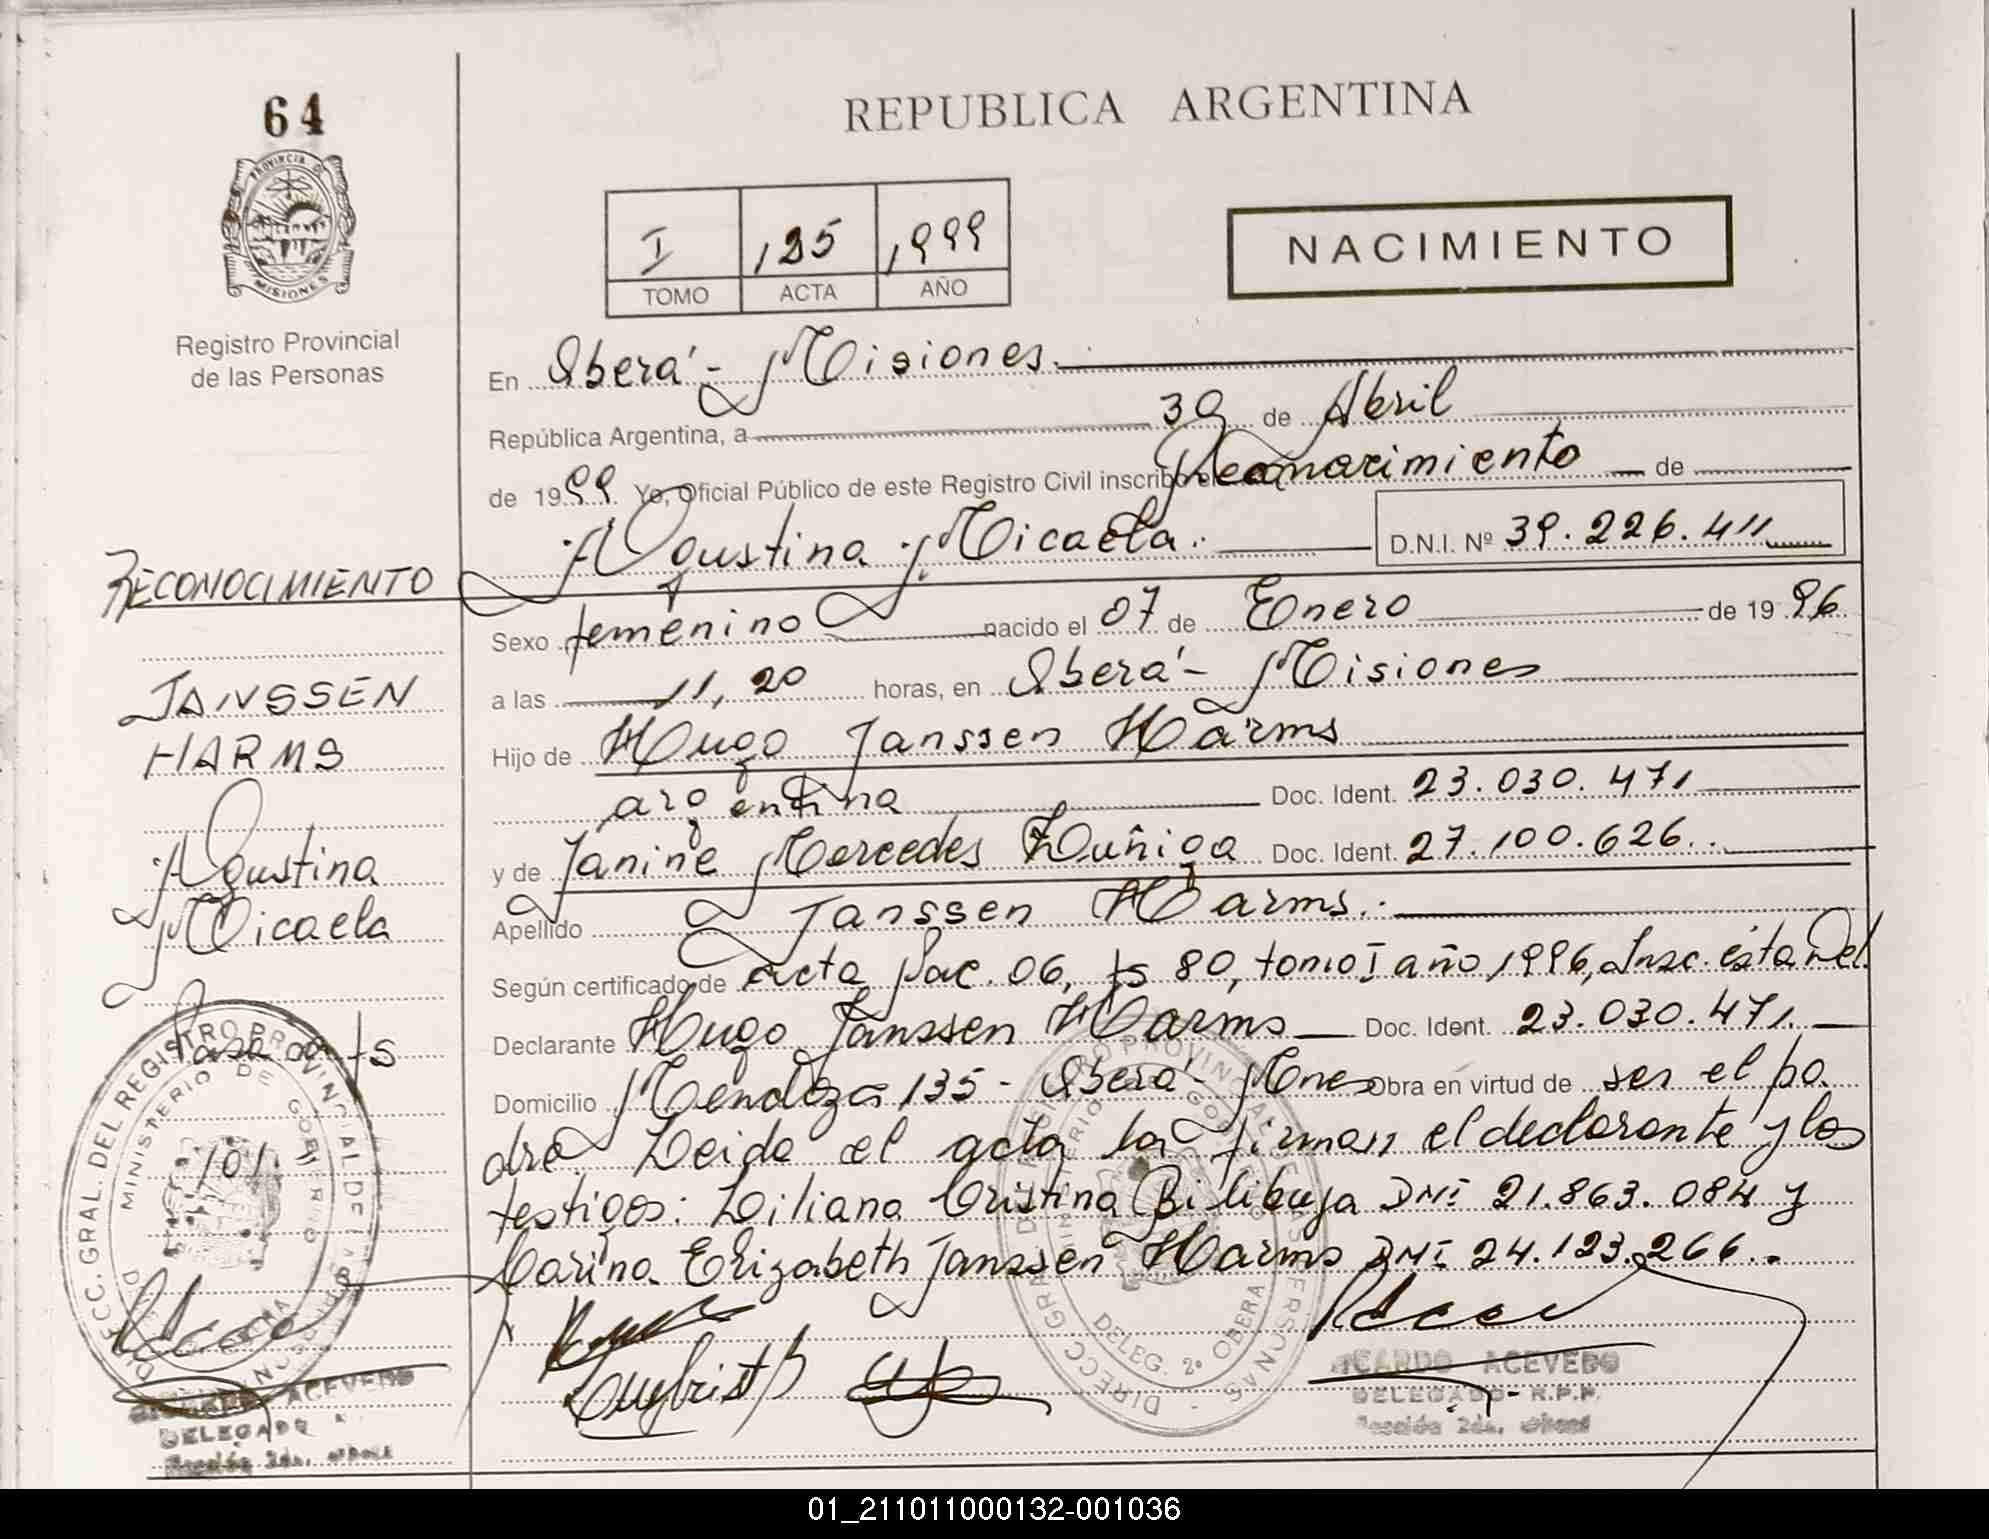 64
PROVINCIA D
MISIONES
Registro Provincial
de las Personas
REPUBLICA ARGENTINA
I 125 1999
TOMO ACTA AÑO
NACIMIENTO
En Oberá - Misiones.
República Argentina, a 30 de Abril
de 1999. Yo, Oficial Público de este Registro Civil inscribo el Reconocimiento de
Agustina Micaela. D.N.I. Nº 39.226.411
Sexo femenino nacido el 07 de Enero de 1996
a las 11,20 horas, en Oberá - Misiones
Hijo de Hugo Janssen Harms
argentina Doc. Ident. 23.030.471
y de Janine Mercedes Zuñiga Doc. Ident. 27.100.626.
Apellido Janssen Harms.
Según certificado de acta Nac. 06, fs 80, tomo I año 1996, Insc. ésta Del.
Declarante Hugo Janssen Harms Doc. Ident. 23.030.471.
Domicilio Mendoza 135 - Oberá - Mnes Obra en virtud de ser el pa
dre. Leida el acta la firman el declarante y los
testigos: Liliana Cristina DNI 21.863.084 y
Carina Elizabeth Janssen Harms DNI 24.123.266.
RECONOCIMIENTO
JANSSEN
HARMS
Agustina
Micaela
Pasa a fs
101.
DIRECC. GRAL. DEL REGISTRO PROVINCIAL DE LAS PERSONAS
MINISTERIO DE GOBIERNO
DELEG. 2º OBERA
RICARDO ACEVEDO
DELEGADO
Sección 2da. Oberá
RICARDO ACEVEDO
DELEGADO - R.P.P.
Sección 2da. Oberá
01_211011000132-001036